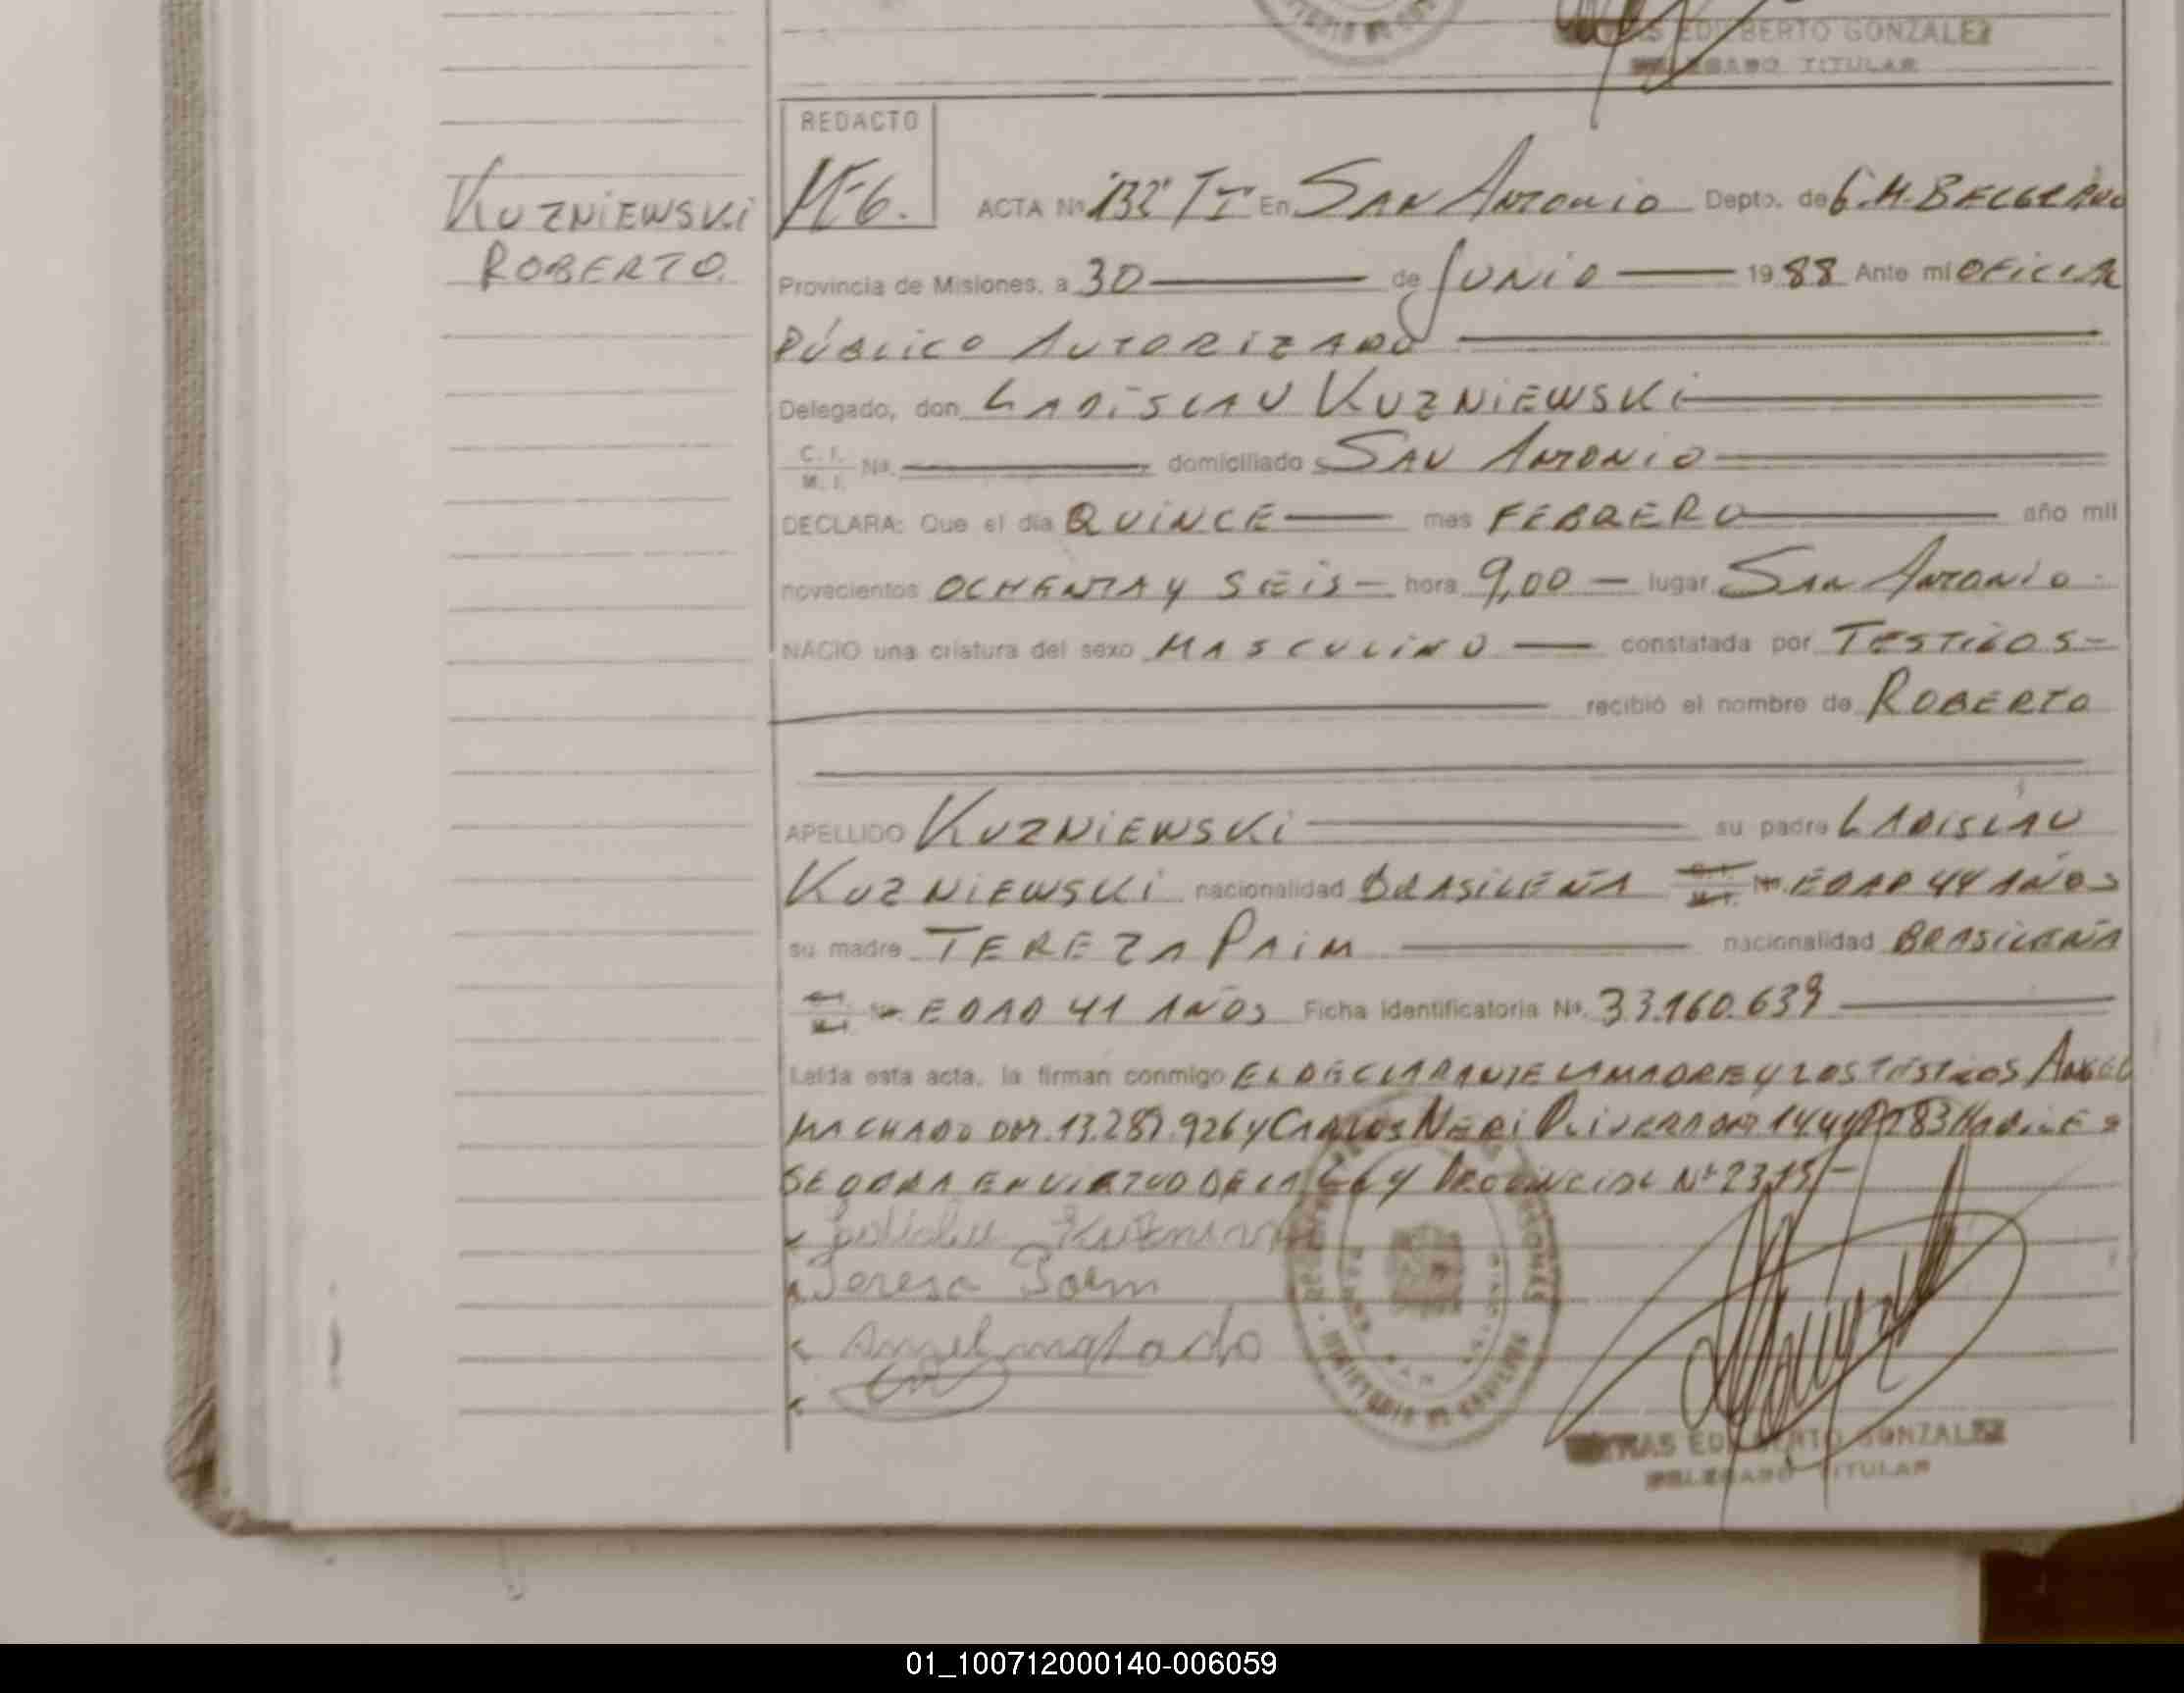 EDILBERTO GONZALEZ
DELEGADO TITULAR
REDACTO
KUZNIEWSKI
ROBERTO.
ACTA Nº 132 TºI En SAN ANTONIO Depto. de G.M.BELGRANO
Provincia de Misiones, a 30 de JUNIO 1988 Ante mi OFICIAL
PÚBLICO AUTORIZADO
Delegado, don LADISLAU KUZNIEWSKI
C. I.
M. I. Nº. domiciliado SAN ANTONIO
DECLARA: Que el día QUINCE mes FEBRERO año mil
novecientos OCHENTA Y SEIS - hora 9,00 - lugar SAN ANTONIO -
NACIO una criatura del sexo MASCULINO constatada por TESTIGOS-
recibió el nombre de ROBERTO
APELLIDO KUZNIEWSKI su padre LADISLAU
KUZNIEWSKI nacionalidad BRASILEÑA EDAD 44 AÑOS
su madre TEREZA PAIM nacionalidad BRASILEÑA
EDAD 41 AÑOS Ficha Identificatoria Nº. 33.160.639
Leída esta acta, la firman conmigo EL DECLARANTE LA MADRE Y LOS TESTIGOS ANGEL
MACHADO DNI. 13.287.926 Y CARLOS NERI OLIVERA DNI
SE OBRA EN VIRTUD DE LA LEY PROVINCIAL Nº 2315/-
Teresa Paim
Angel machado
EDILBERTO GONZALEZ
DELEGADO TITULAR
01_100712000140-006059